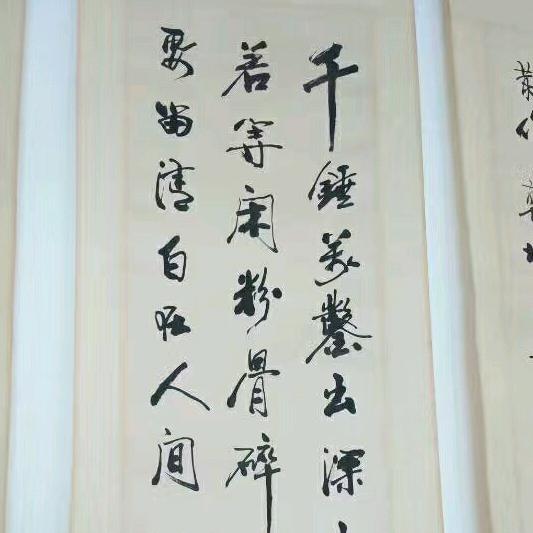 千锤万凿出深
若等闲粉骨碎
要留清白在人间